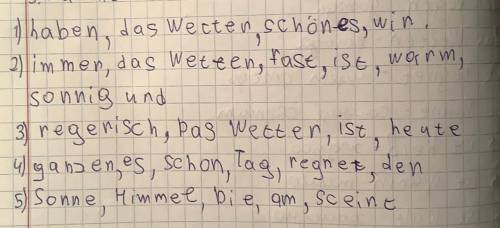 1) haben, das Wetter, schönes, wir.
2) immer, das Wetter, fast, ist, warm,
sonnig und
3) regerisch, Das Wetter, ist, heute
4) ganzen, es, schon, Tag, regnet, den
5) Sonne, Himmel, Die, am, sceint